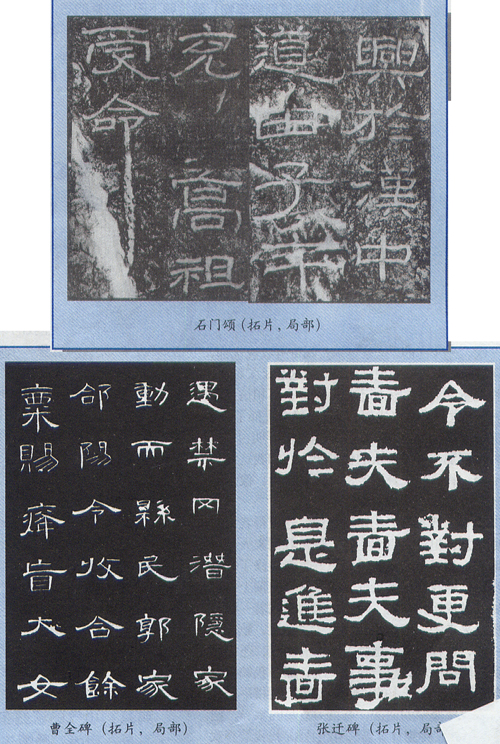 興於漢中
道由子午
充高祖
受命
石门颂(拓片,局部)
遇禁冈潛隱家
動而縣民郭家
郃陽令收合餘
粟賜癃盲大女
曹全碑(拓片,局部)
令不對更問
嗇夫嗇夫事
對於是進嗇
张迁碑(拓片,局部